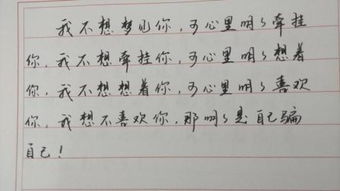 我不想梦见你，可心里明々牵挂
你，我不想牵挂你，可心里明々想着
你，我不想想着你，可心里明々喜欢
你，我想不喜欢你，那明々是自己骗
自己！